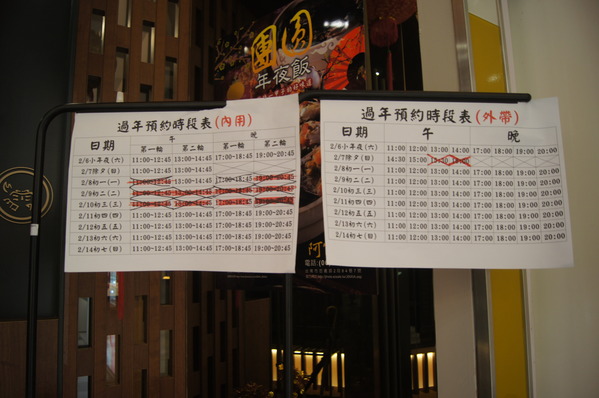 團圓
年夜飯
過年預約時段表(內用)
日期 午 晚
第一輪 第二輪 第一輪 第二輪
2/6小年夜(六) 11:00-12:45 13:00-14:45 17:00-18:45 19:00-20:45
2/7除夕(日) 11:00-12:45 13:00-14:45 17:00-18:45 19:00-20:45
2/8初一(一) 15:00-14:45 17:00-18:45
2/9初二(二)
2/10初三(三)
2/11初四(四) 11:00-12:45 13:00-14:45 17:00-18:45 19:00-20:45
2/12初五(五) 11:00-12:45 13:00-14:45 17:00-18:45 19:00-20:45
2/13初六(六) 11:00-12:45 13:00-14:45 17:00-18:45 19:00-20:45
2/14初七(日) 11:00-12:45 13:00-14:45 17:00-18:45 19:00-20:45
過年預約時段表(外帶)
日期 午 晚
2/6小年夜(六) 11:00 12:00 13:00 14:00 17:00 18:00 19:00 20:00
2/7除夕(日) 14:30 15:00 15:30 16:00
2/8初一(一) 11:00 12:00 13:00 14:00 17:00 18:00 19:00 20:00
2/9初二(二) 11:00 12:00 13:00 14:00 17:00 18:00 19:00 20:00
2/10初三(三) 11:00 12:00 13:00 14:00 17:00 18:00 19:00 20:00
2/11初四(四) 11:00 12:00 13:00 14:00 17:00 18:00 19:00 20:00
2/12初五(五) 11:00 12:00 13:00 14:00 17:00 18:00 19:00 20:00
2/13初六(六) 11:00 12:00 13:00 14:00 17:00 18:00 19:00 20:00
2/14初七(日) 11:00 12:00 13:00 14:00 17:00 18:00 19:00 20:00
阿
電話:(0